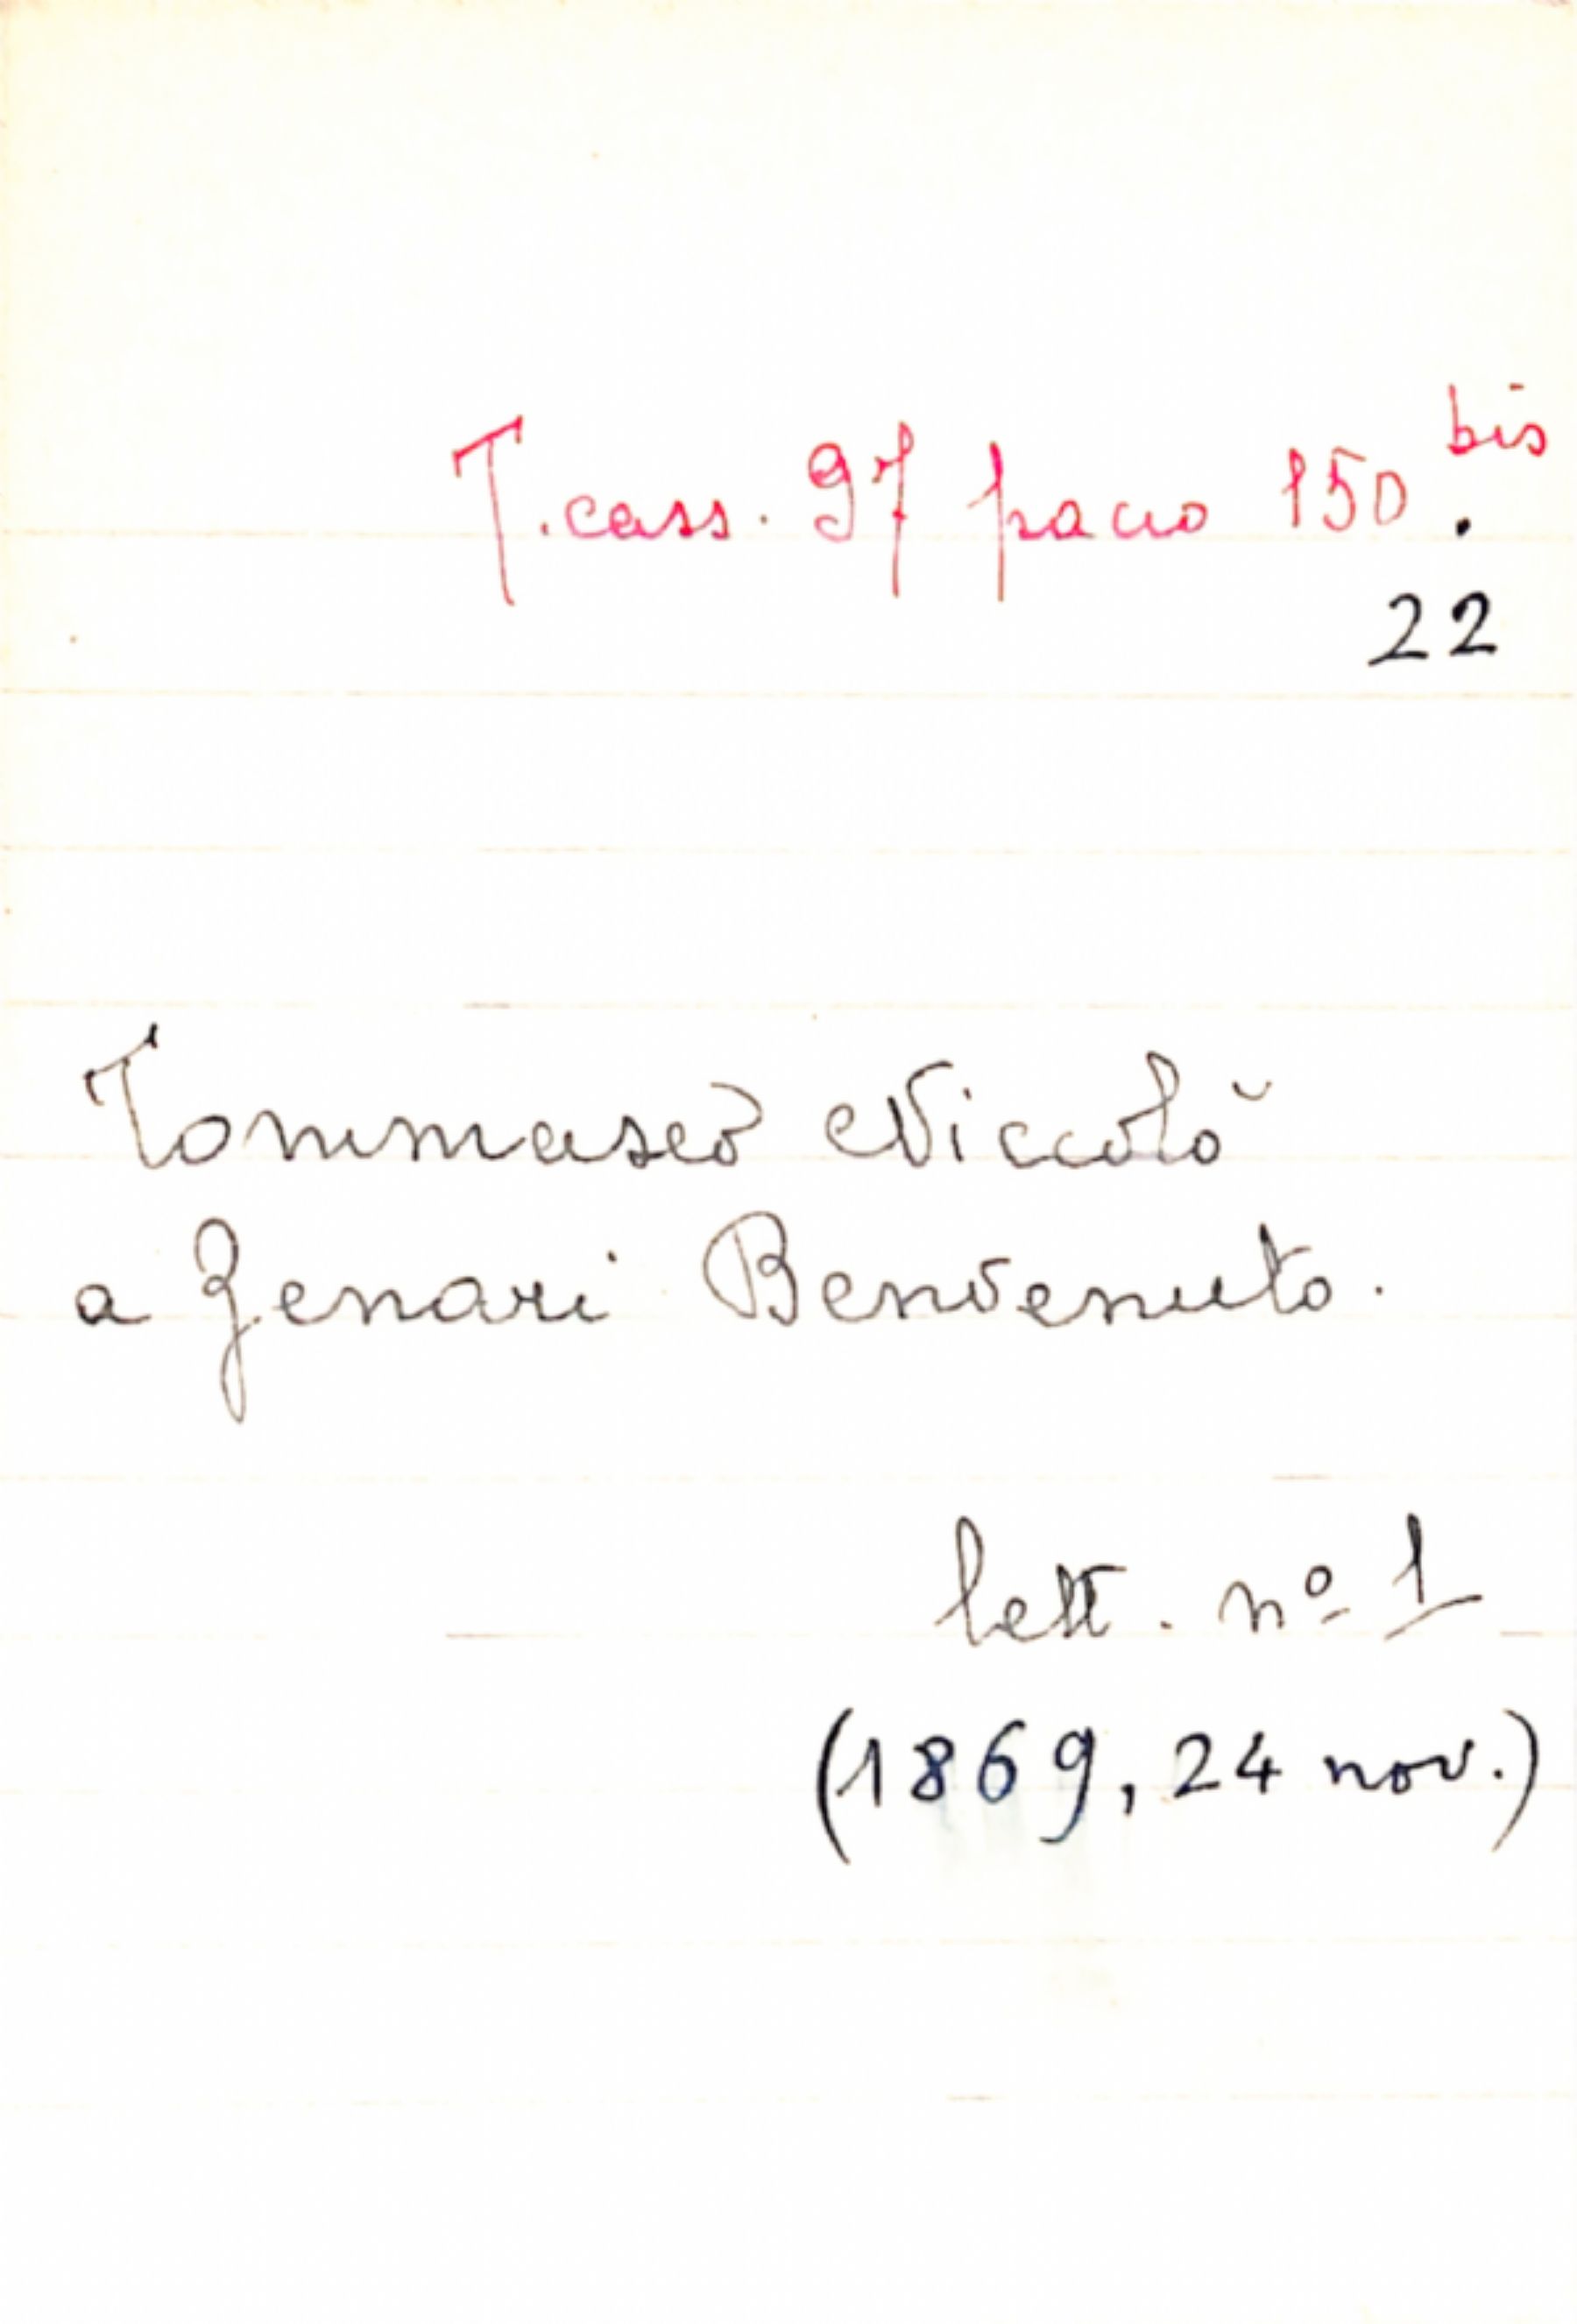 T. cass. 97 pacco 150 bis.
22
Tommaseo Niccolò
a Zenari Benvenuto.
lett. nº 1
(1869, 24 nov.)